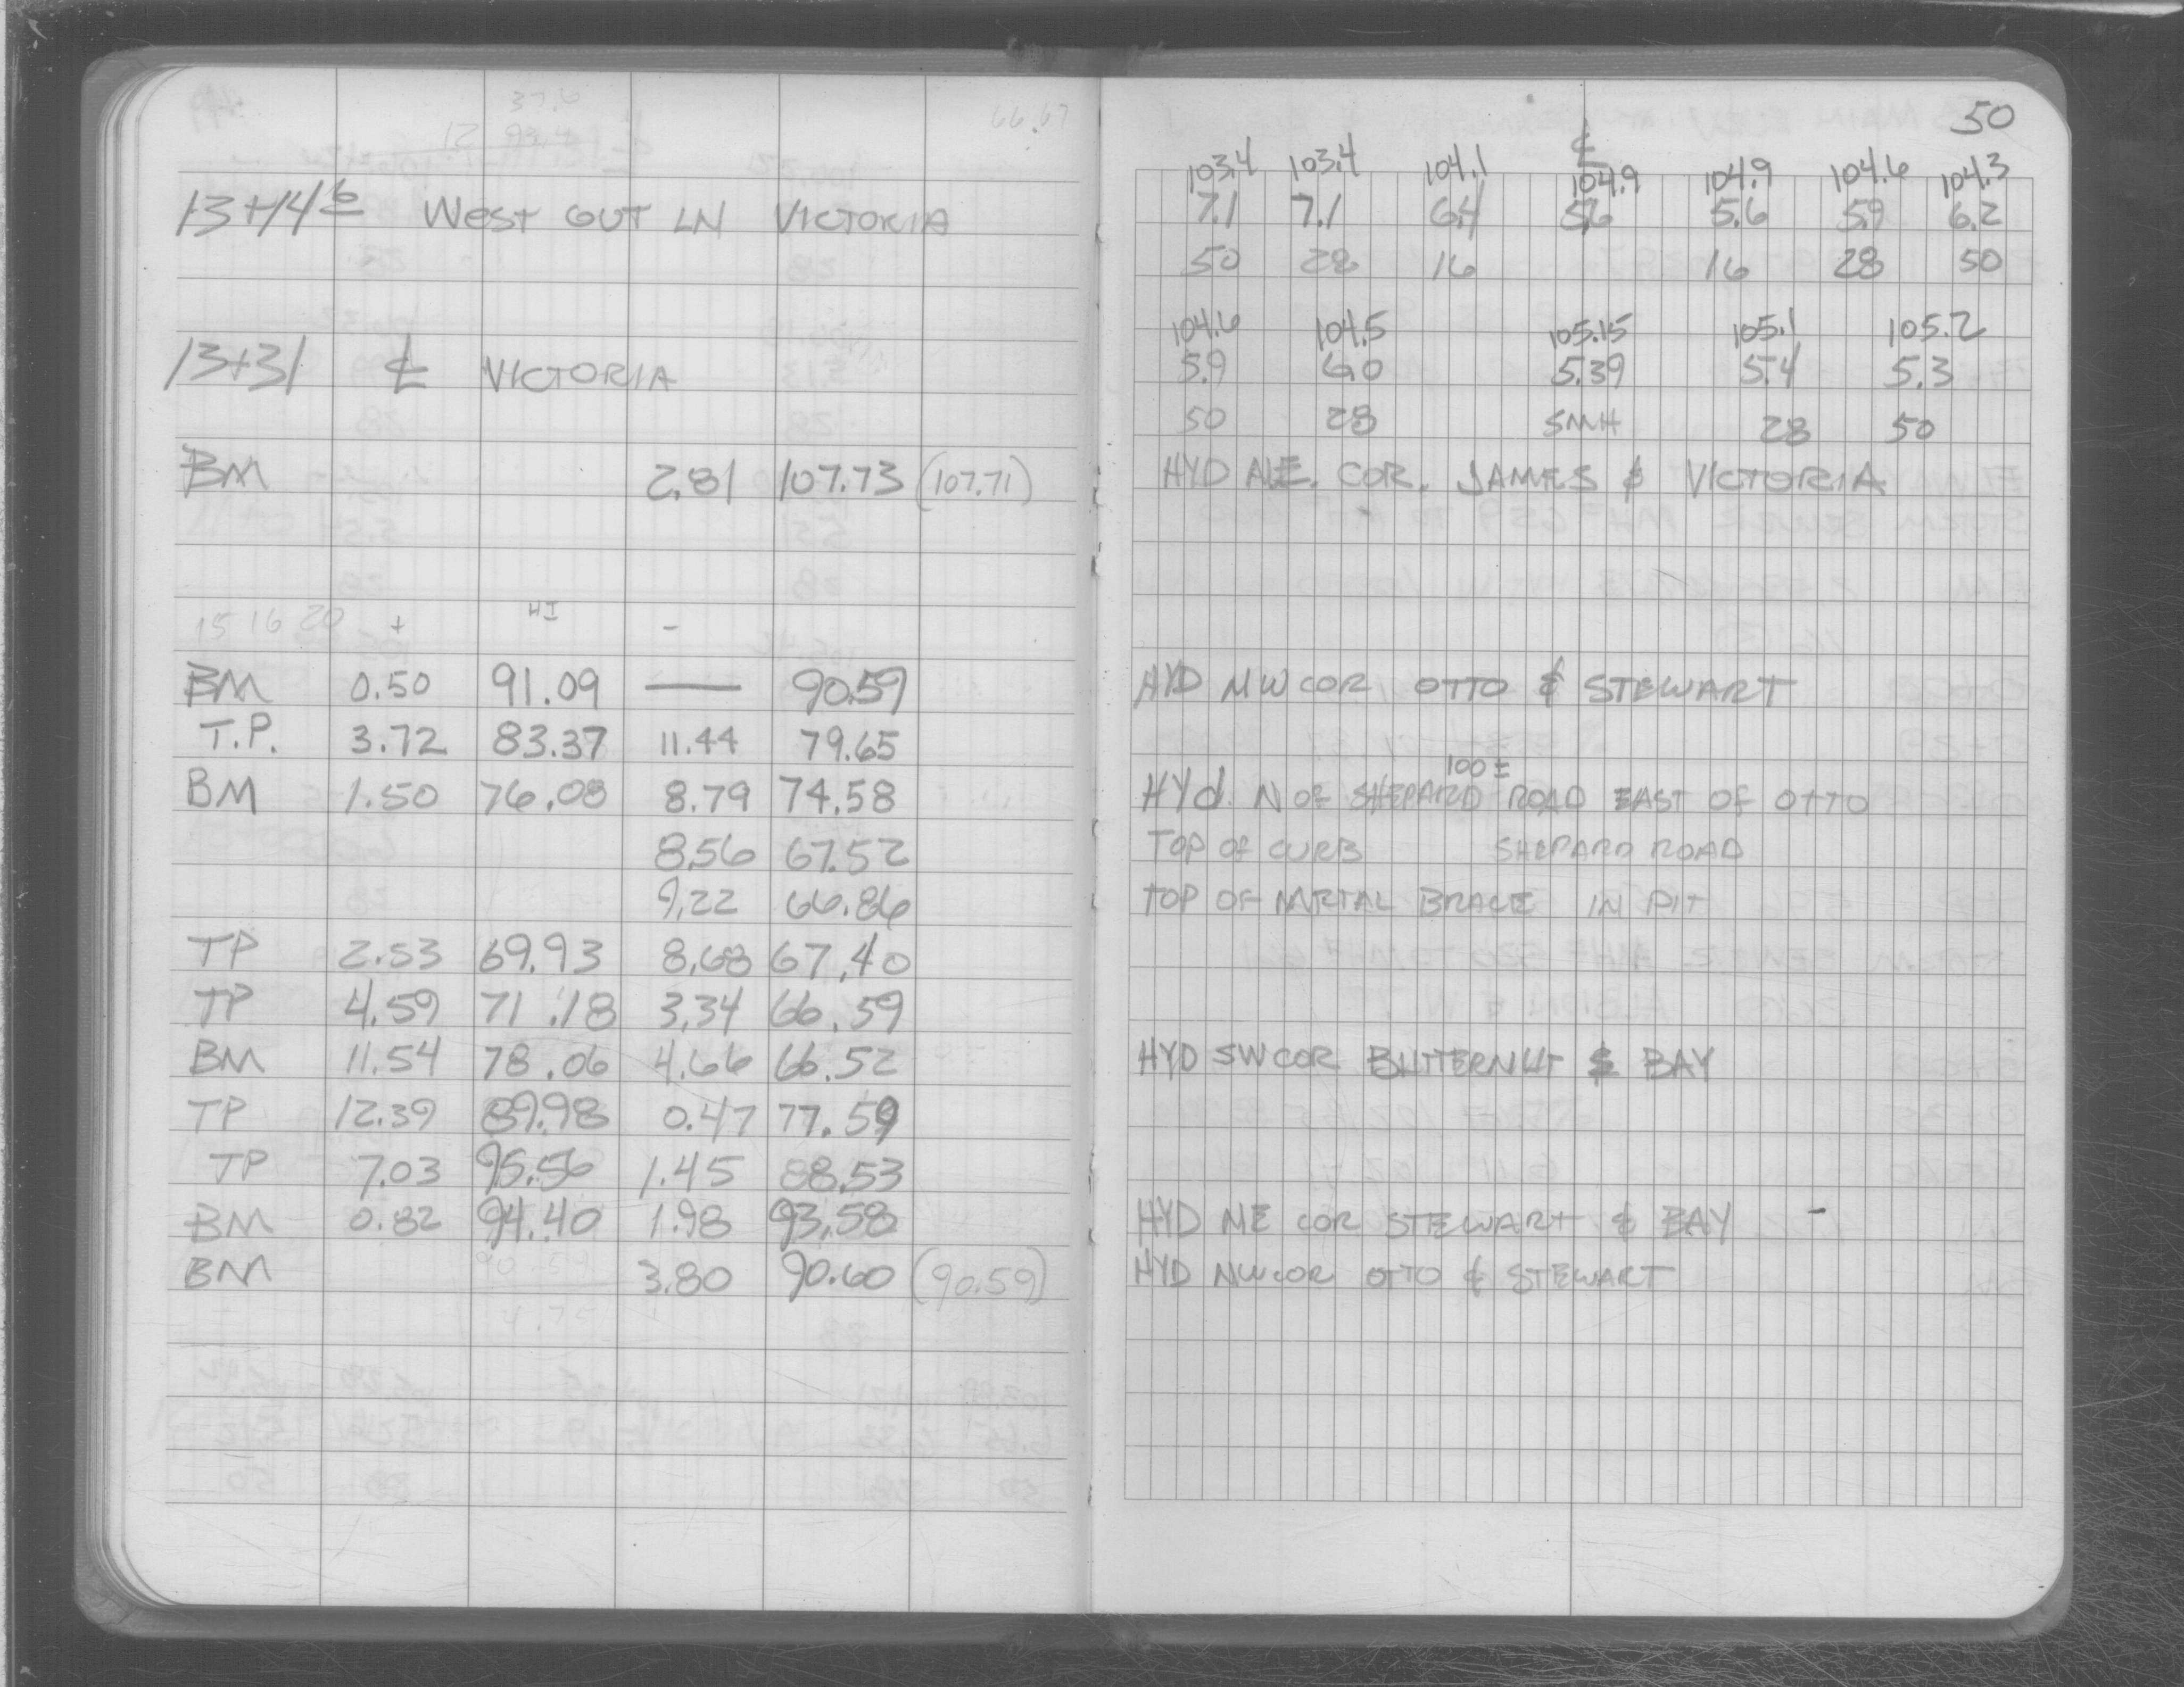 50
37.6
12 93.4
66.67
13+14⁶ WEST GUT LN VICTORIA
13+31 ℄ VICTORIA
BM 2.81 107.73 (107.71)
15 16 20 + HI -
BM 0.50 91.09 — 90.59
T.P. 3.72 83.37 11.44 79.65
BM 1.50 76.08 8.79 74.58
8.56 67.52
9.22 66.86
TP 2.53 69.93 8.68 67.40
TP 4.59 71.18 3.34 66.59
BM 11.54 78.06 4.66 66.52
TP 12.39 89.98 0.47 77.59
TP 7.03 95.56 1.45 88.53
BM 0.82 94.40 1.98 93.58
BM 3.80 90.60 (90.59)
℄
103.4 103.4 104.1 104.9 104.9 104.6 104.3
7.1 7.1 6.4 5.6 5.6 5.9 6.2
50 28 16 16 28 50
104.6 104.5 105.15 105.1 105.2
5.9 6.0 5.39 5.4 5.3
50 28 SMH 28 50
HYD N.E. COR. JAMES & VICTORIA
HYD NW COR OTTO & STEWART
100 ±
HYd. N OF SHEPARD ROAD EAST OF OTTO
TOP OF CURB SHEPARD ROAD
TOP OF METAL BRACE IN PIT
HYD SW COR BUTTERNUT & BAY
HYD NE COR STEWART & BAY -
HYD NW COR OTTO & STEWART